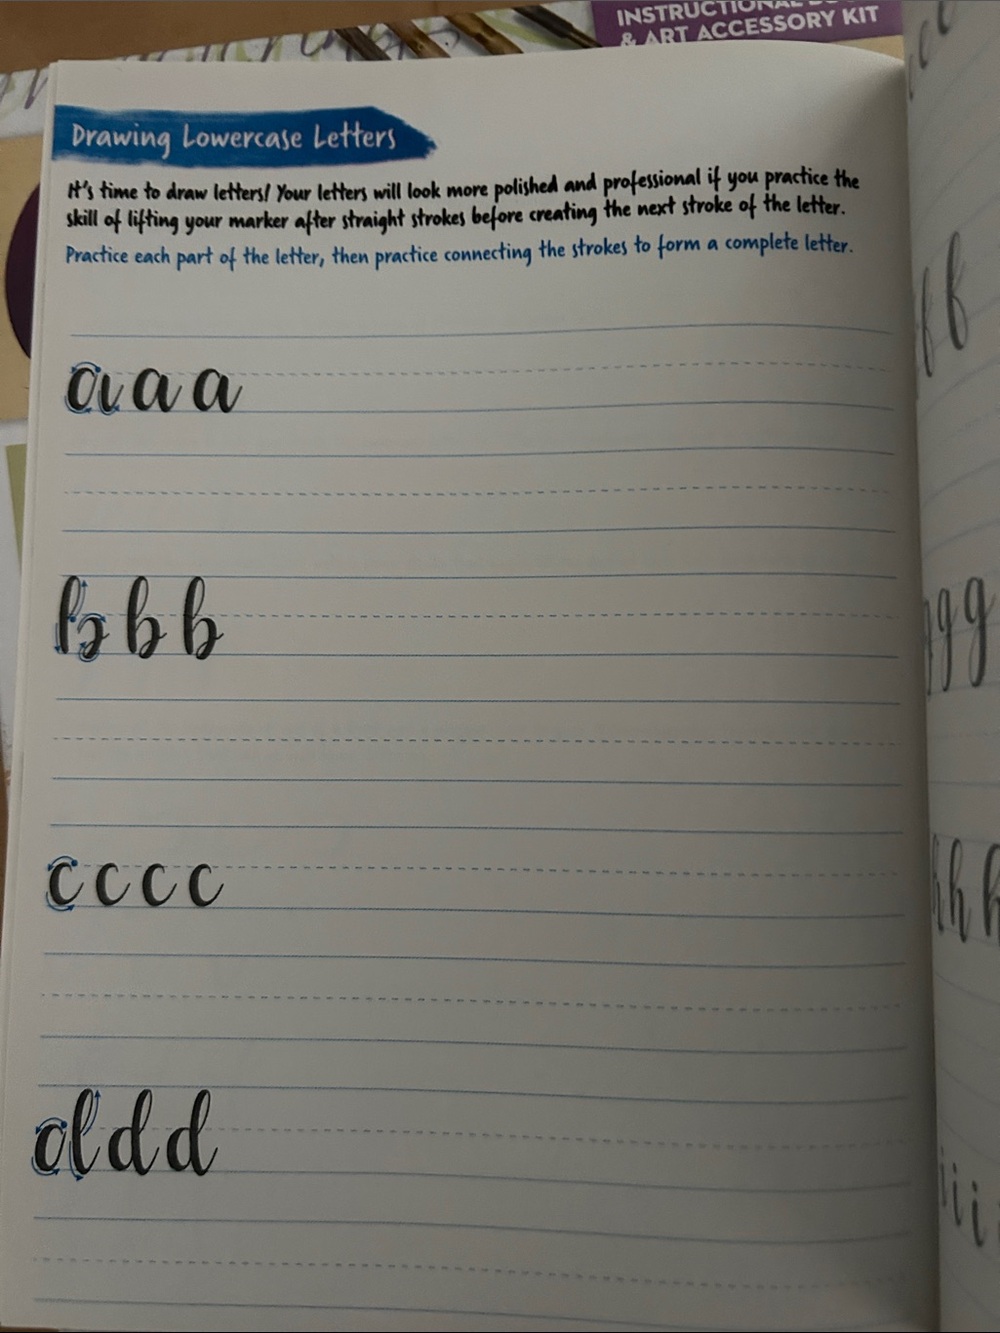 INSTRUCTIONAL
& ART ACCESSORY KIT
Drawing Lowercase Letters
It's time to draw letters! Your letters will look more polished and professional if you practice the
skill of lifting your marker after straight strokes before creating the next stroke of the letter.
Practice each part of the letter, then practice connecting the strokes to form a complete letter.
a a a
b b b
c c c c
d d d
f f
g g g
h h h
i i i